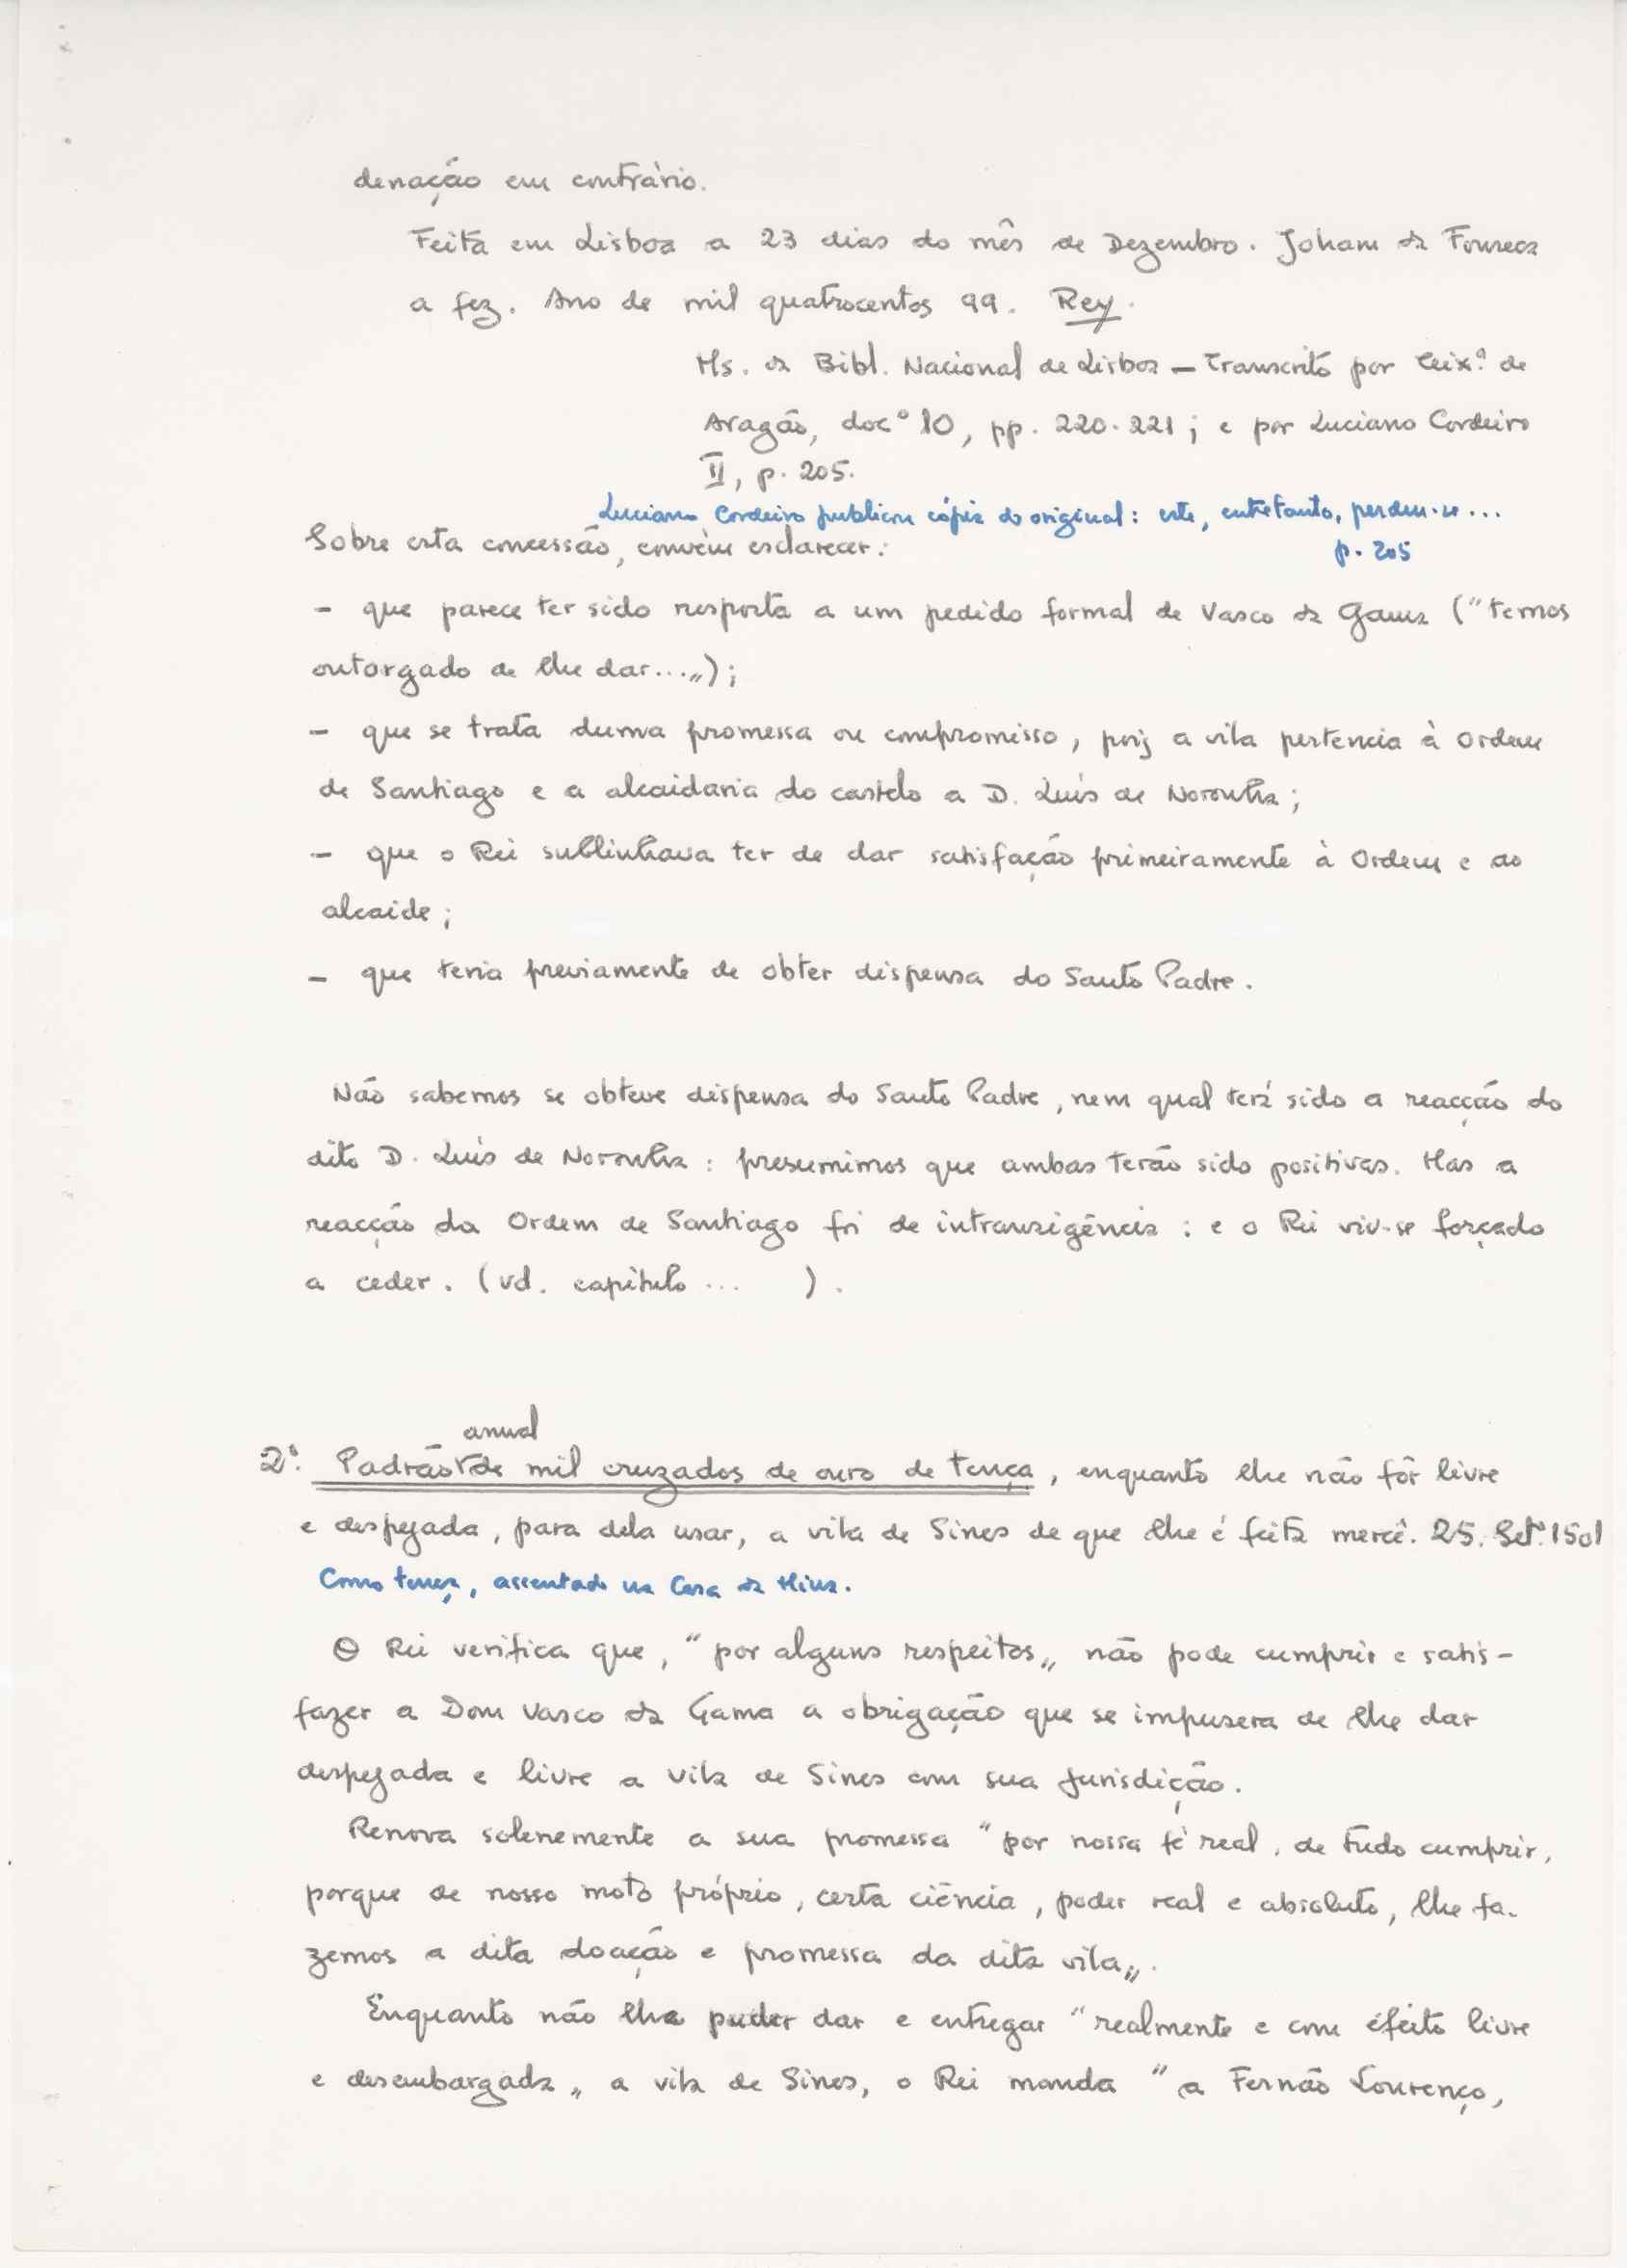 denação em contrário.
Feita em Lisboa a 23 dias do mês de Dezembro. Joham da Fonseca
a fez. Ano de mil quatrocentos 99. Rey.
Ms. da Bibl. Nacional de Lisboa – Transcrito por Teix.ª de
Aragão, doc º 10, pp. 220-221; e por Luciano Cordeiro
II, p. 205.
Luciano Cordeiro publicou cópia do original: este, entretanto, perdeu-se...
p. 205
Sobre esta concessão, convém esclarecer:
– que parece ter sido resposta a um pedido formal de Vasco da Gama ("temos
outorgado de lhe dar...");
– que se trata duma promessa ou compromisso, pois a vila pertencia à Ordem
de Santiago e a alcaidaria do castelo a D. Luís de Noronha;
– que o Rei sublinhava ter de dar satisfação primeiramente à Ordem e ao
alcaide;
– que teria previamente de obter dispensa do Santo Padre.
Não sabemos se obteve dispensa do Santo Padre, nem qual terá sido a reacção do
dito D. Luís de Noronha: presumimos que ambas terão sido positivas. Mas a
reacção da Ordem de Santiago foi de intransigência: e o Rei viu-se forçado
a ceder. (vd. capítulo ... ).
anual
2º. Padrão de mil cruzados de ouro de tença, enquanto lhe não fôr livre
e despejada, para dela usar, a vila de Sines de que lhe é feita mercê. 25. Setº. 1501
Como tença, assentado na Casa da Mina.
O Rei verifica que, "por alguns respeitos" não pode cumprir e satis-
fazer a Dom Vasco da Gama a obrigação que se impusera de lhe dar
despejada e livre a vila de Sines com sua jurisdição.
Renova solenemente a sua promessa "por nossa fé real, de tudo cumprir,
porque de nosso moto próprio, certa ciência, poder real e absoluto, lhe fa-
zemos a dita doação e promessa da dita vila".
Enquanto não lhe puder dar e entregar "realmente e com efeito livre
e desembargada" a vila de Sines, o Rei manda "a Fernão Lourenço,